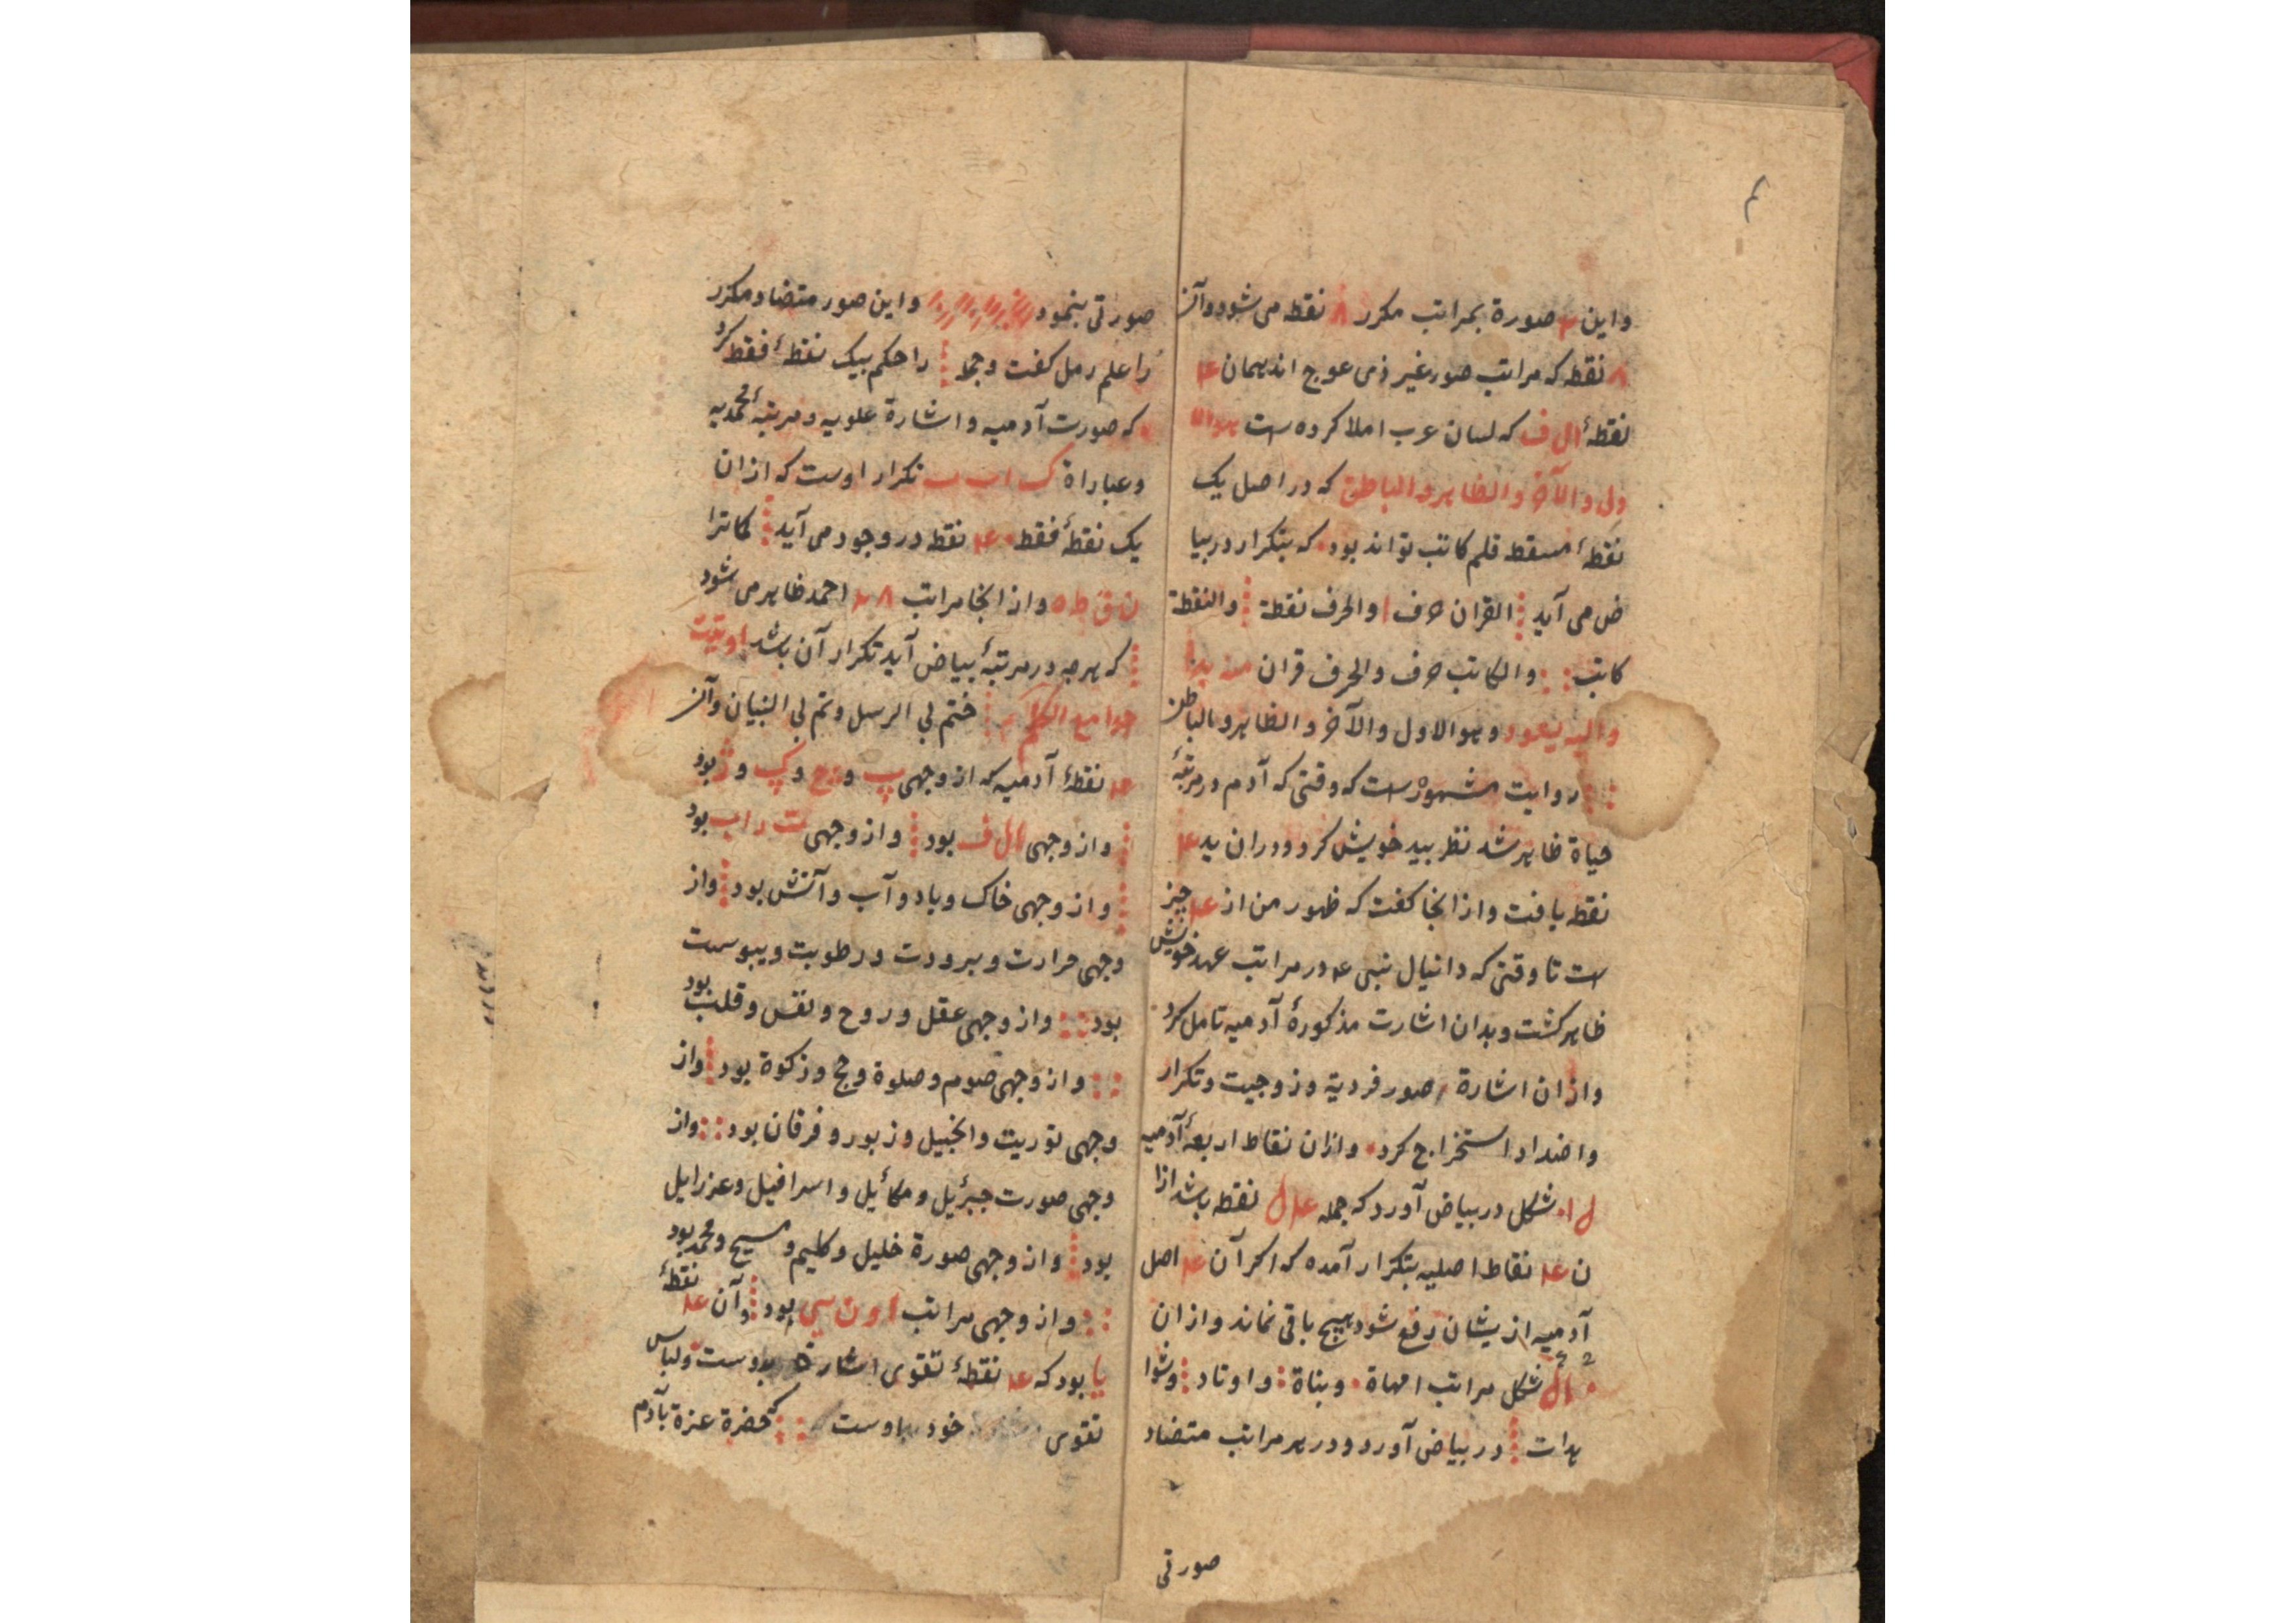 ۴
واین ۴ صورة بمراتب مکرر ۸ نقطه می شود وآن
۸ نقطه که مراتب صور غیر ذی عوج اند همان ۴
نقطهٔ ال ف که لسان عرب املا کرده است هوالا
ول والآخر والظاهر والباطن که در اصل یک
نقطهٔ مسقط قلم کاتب تواند بود که بتکرار در بیا
ض می آید القران حرف ا والحرف نقطة والنقطة
کاتب والکاتب حرف والحرف قران منه بدا
والیه یعود وهوالاول والآخر والظاهر والباطن
روایت مشهور است که وقتی که آدم در مرتبهٔ
حیاة ظاهر شد نظر بید خویش کرد ودران ید ۴
نقطه یافت واز انجا کفت که ظهور من از ۴ چیز
است تا وقتی که دانیال نبی ع در مراتب عهد خویش
ظاهر کشت وبدان اشارت مذکورهٔ آدمیه تامل کرد
وازان اشارة صور فردیة وزوجیت وتکرار
واضداد استخراج کرد وازان نقاط اربعهٔ آدمیه
شکل در بیاض آورد که جمله نقطه باشد ازا
ن ۴ نقاط اصلیه بتکرار آمده که اکر آن ۴ اصل
آدمیه ازیشان رفع شود هیچ باقی نماند وازان
شکل مراتب امهاة وبناة واوتاد وشوا
هدات در بیاض آورد ودر هر مراتب متضاد
صورتی
صورتی بنمود واین صور متضاد مکرر
را علم رمل کفت وجمله را حکم بیک نقطهٔ فقط کرد
که صورت آدمیه واشارة علویه ومرتبهٔ محمدیه
وعباراة ک اب ب تکرار اوست که ازان
یک نقطهٔ فقط ۴ نقطه در وجود می آید کماترا
ن ق ط ه واز انجا مراتب احمد ظاهر می شود
که هرچه در مرتبهٔ بیاض آید تکرار آن باشد اوتیت
جوامع الکلم ختم بی الرسل وتم بی النبیان وآن
۴ نقطهٔ آدمیه که از وجهی پ و چ و گ و ژ بود
واز وجهی ال ف بود واز وجهی ت راب بود
واز وجهی خاک وباد وآب وآتش بود واز
وجهی حرارت وبرودت ورطوبت ویبوست
بود واز وجهی عقل وروح ونفس وقلب بود
واز وجهی صوم وصلوة وحج وزکوة بود واز
وجهی توریت وانجیل وزبور وفرقان بود واز
وجهی صورت جبرئیل ومکائیل واسرافیل وعزرایل
بود واز وجهی صورة خلیل وکلیم ومسیح ومحمد بود
واز وجهی مراتب بود وآن ۴ نقطهٔ
یا بود که ۴ نقطهٔ تقوی اشارة بدوست ولباس
تقوی خود اوست کحضرة عزة بآدم